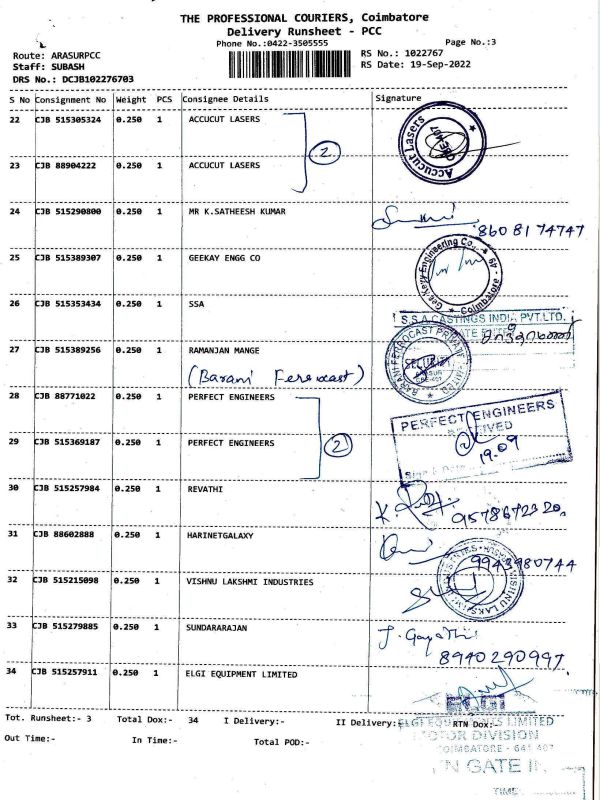 THE PROFESSIONAL COURIERS, Coimbatore
Delivery Runsheet - PCC
Phone No.:0422-3505555 Page No.:3
Route: ARASURPCC RS No.: 1022767
Staff: SUBASH RS Date: 19-Sep-2022
DRS No.: DCJB102276703
S No Consignment No Weight PCS Consignee Details Signature
22 CJB 515305324 0.250 1 ACCUCUT LASERS
Accucut Lasers
2
23 CJB 88904222 0.250 1 ACCUCUT LASERS
24 CJB 515290800 0.250 1 MR K.SATHEESH KUMAR
8608174747
25 CJB 515389307 0.250 1 GEEKAY ENGG CO
Gee Kay Engineering Co., Coimbatore - 49
26 CJB 515353434 0.250 1 SSA
S.S.A.CASTINGS INDIA PVT.LTD.
27 CJB 515389256 0.250 1 RAMANJAN MANGE
(Barani Ferrocast)
BARANI FERROCAST PRIVATE
SECURITY
28 CJB 88771022 0.250 1 PERFECT ENGINEERS
PERFECT ENGINEERS
2
19.09
29 CJB 515369187 0.250 1 PERFECT ENGINEERS
30 CJB 515257984 0.250 1 REVATHI
9578672320
31 CJB 88602888 0.250 1 HARINETGALAXY
9943980744
32 CJB 515215098 0.250 1 VISHNU LAKSHMI INDUSTRIES
VISHNU LAKSHMI
33 CJB 515279885 0.250 1 SUNDARARAJAN
J. Gayathri
8940290997
34 CJB 515257911 0.250 1 ELGI EQUIPMENT LIMITED
ELGI
Tot. Runsheet:- 3 Total Dox:- 34 I Delivery:- II Delivery: RTN Dox:-
ELGI EQUIPMENTS LIMITED
MOTOR DIVISION
Out Time:- In Time:- Total POD:-
COIMBATORE - 641 407
IN GATE
TIME: